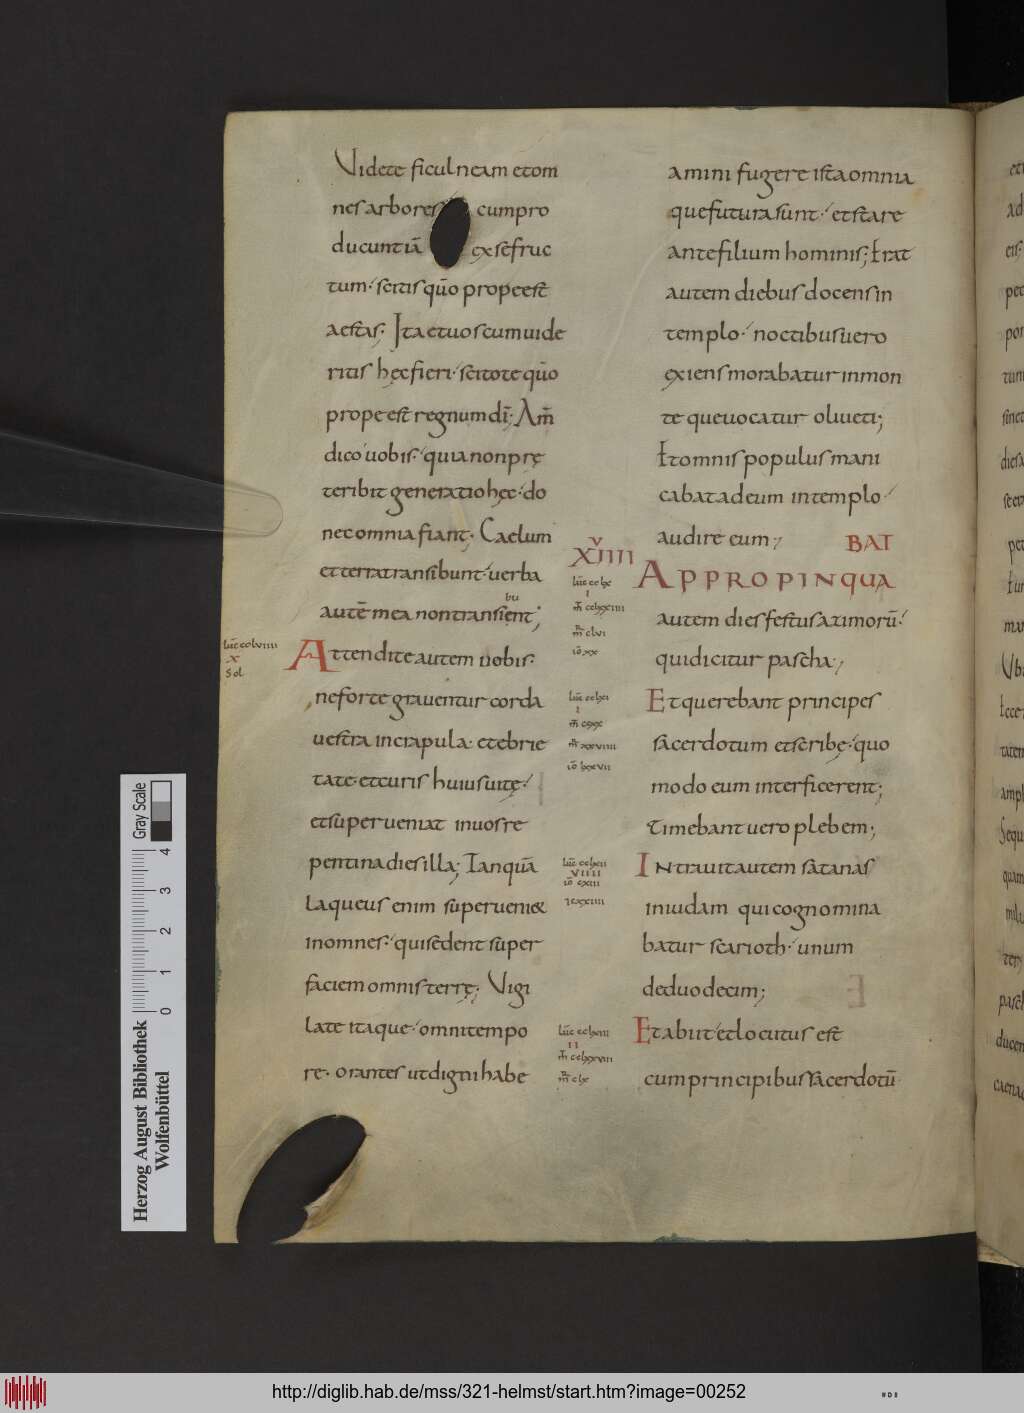 Videte ficulneam et om
nes arbores cum pro
ducunt iā ex se fruc
tum· scitis qūo prope est
aestas· Ita et uos cum uide
ritis hęc fieri· scitote qūo
prope est regnum dī· Am̄
dico uobis· quia non prę
teribit generatio hęc· do
nec omnia fiant· Caelum
et terra transibunt· uerba
bu
autē mea non transient;
luc̄ cclviiii
x
Sol
Attendite autem uobis·
ne forte graventur corda
uestra in crapula· et ebrie
tate· et curis huius uitę·
et superueniat in uos re
pentina dies illa; Tanquā
laqueus enim superueni&
in omnes· qui sedent super
faciem omnis terrę; Vigi
late itaque· omni tempo
re· orantes ut digni habe
amini fugere ista omnia
que futura sunt· et stare
ante filium hominis; Erat
autem diebus docens in
templo· noctibus uero
exiens morabatur in mon
te que uocatur oliueti;
Et omnis populus mani
cabat ad eum in templo
audire eum;
BAT
APPROPINQUA
autem dies festus azimorū·
qui dicitur pascha;
Et querebant principes
sacerdotum et scribę· quo
modo eum interficerent;
Timebant uero plebem;
INtrauit autem satanas
in iudam qui cognomina
batur scarioth· unum
de duodecim;
Et abiit et locutus est
cum principibus sacerdotū
Herzog August Bibliothek
Wolfenbüttel
0 1 2 3 4
Gray Scale
http://diglib.hab.de/mss/321-helmst/start.htm?image=00252